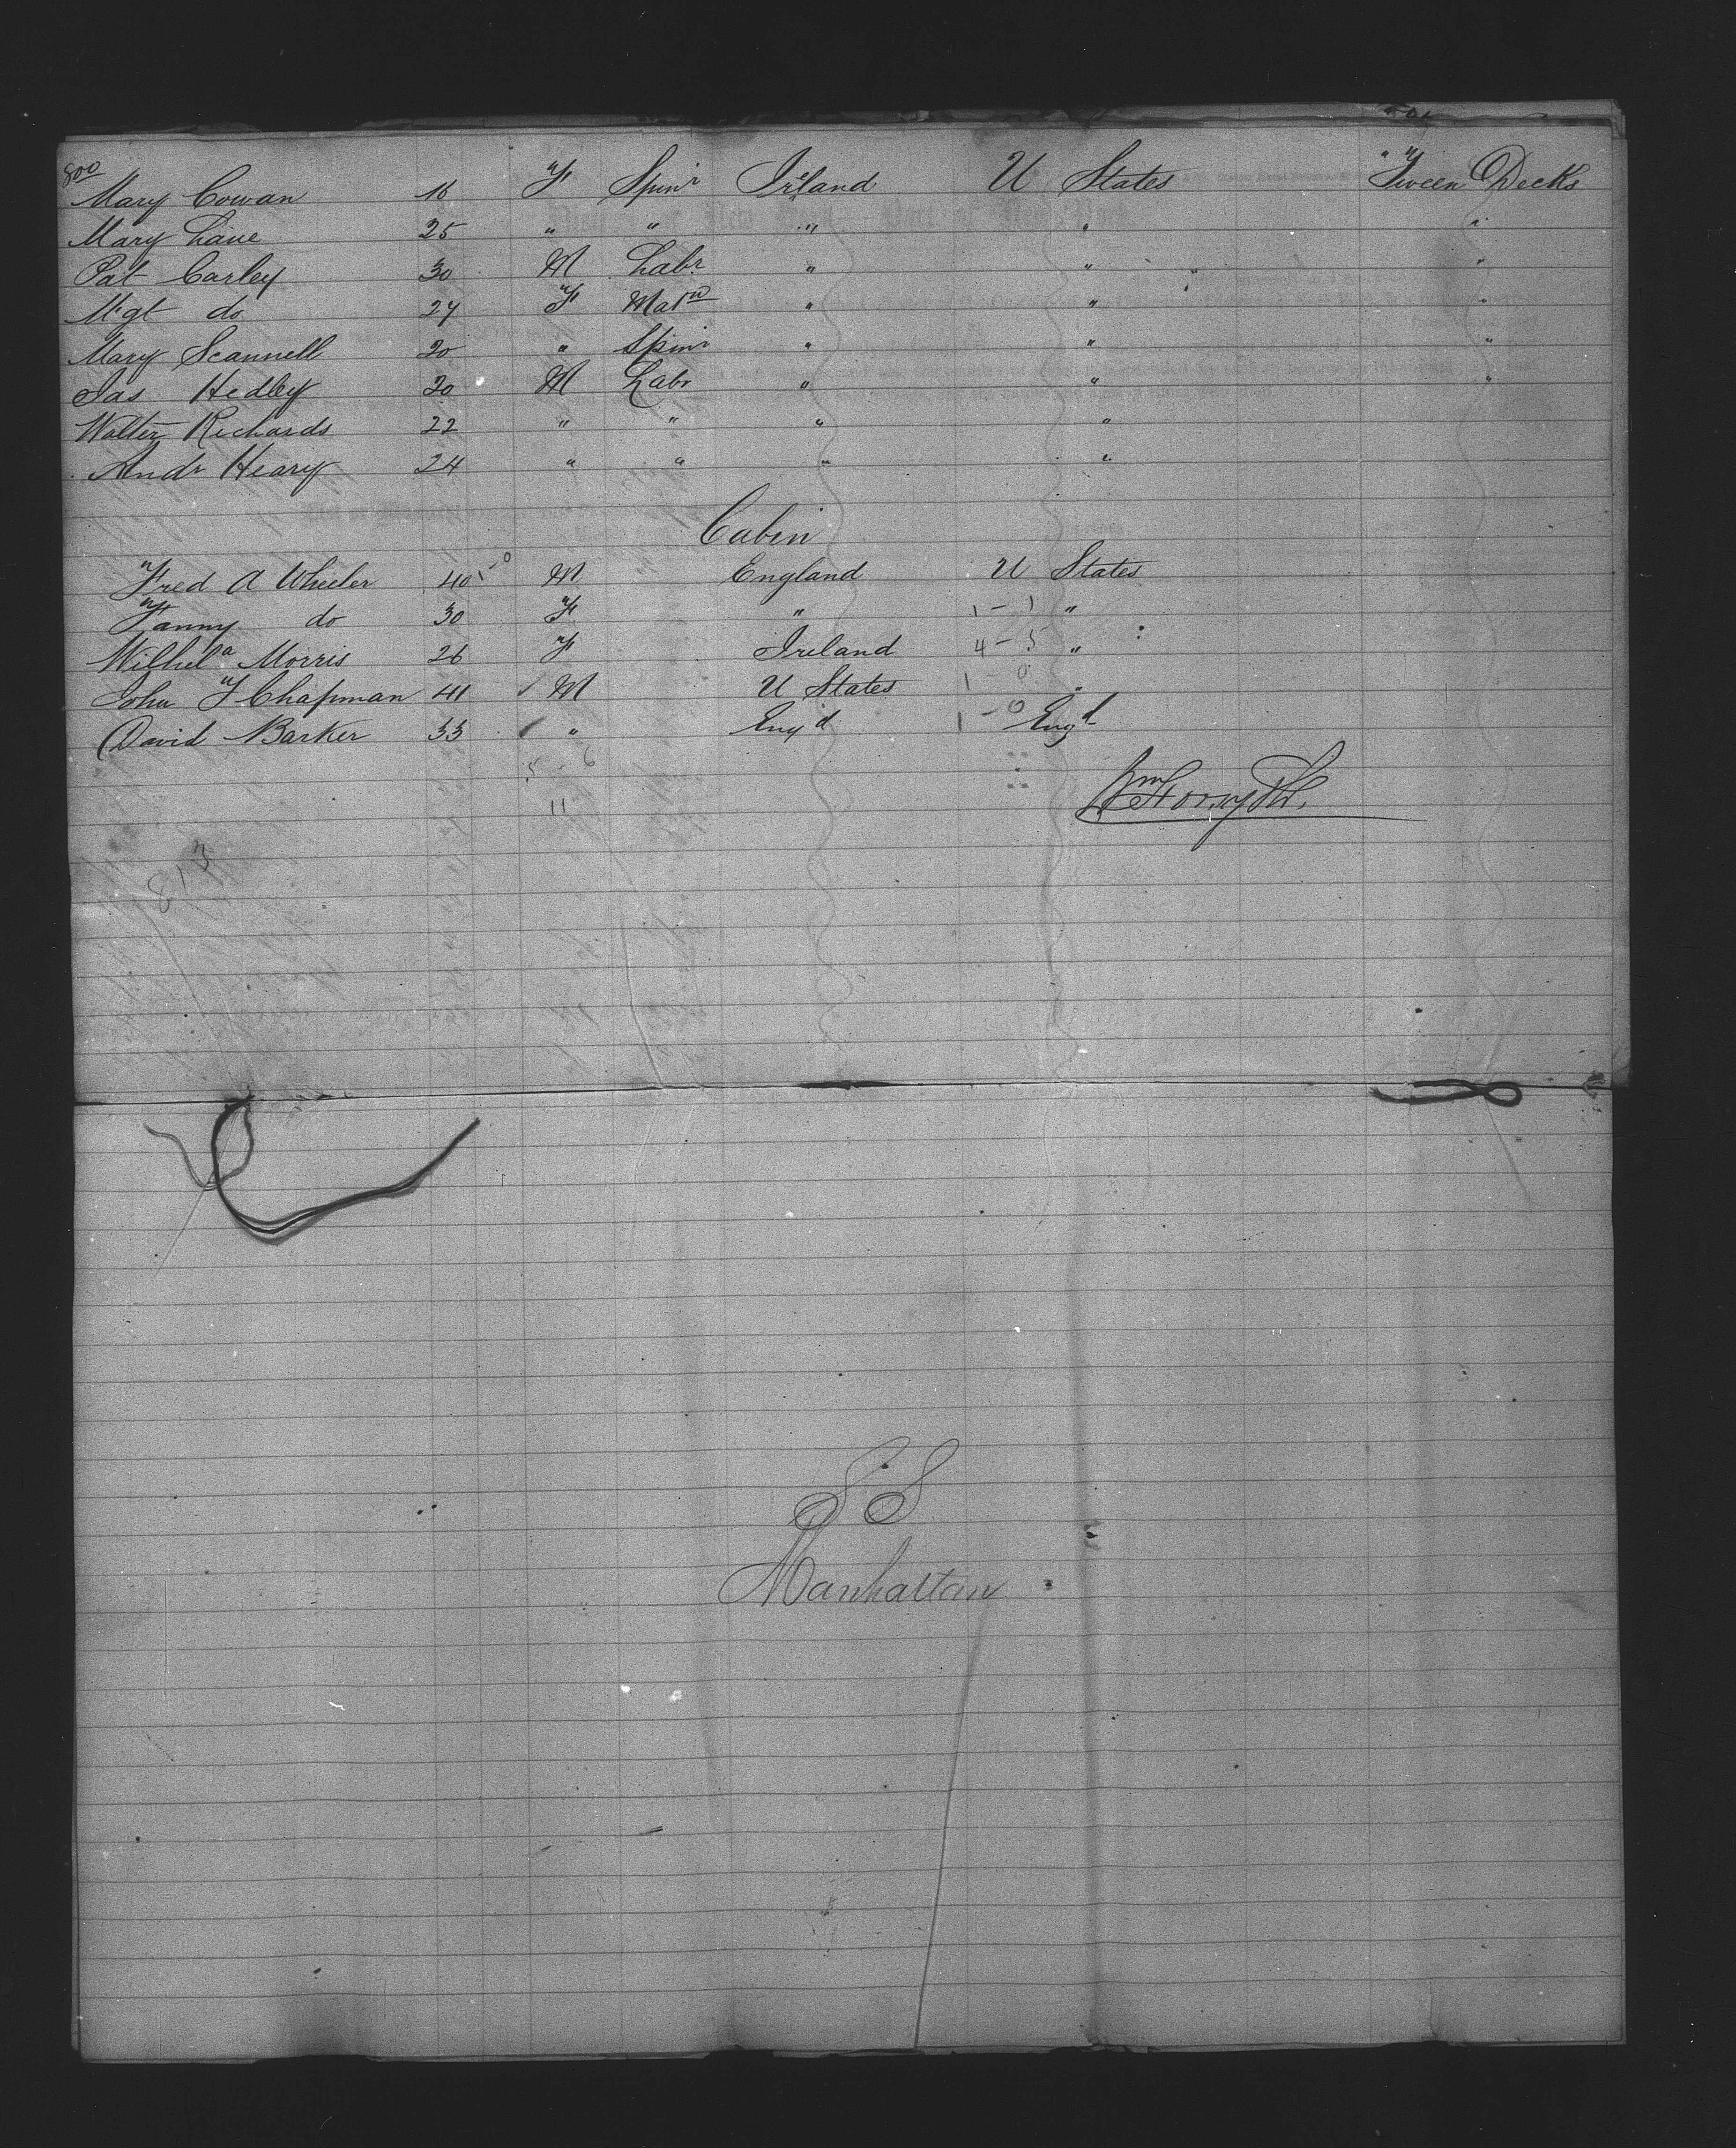 800
Mary Cowan 16 F Spinr Ireland U States Tween Decks
Mary Lane 25 " " " " "
Pat Carley 30 M Labr " " "
Mgt do 27 F Matn " " "
Mary Scannell 20 " Spinr " " "
Jas Hedley 20 M Labr " " "
Walter Richards 22 " " " "
Andr Heary 24 " " " "
Cabin
Fred A Wheeler 40 1-0 M England U States
Fanny do 30 F " 1-1 "
Wilhela Morris 26 F Ireland 4-5 "
John F Chapman 41 M U States 1-0 "
David Barker 33 " Engd 1-0 Engd
5-6
11
Wm Forsyth
813
SS
Manhattan